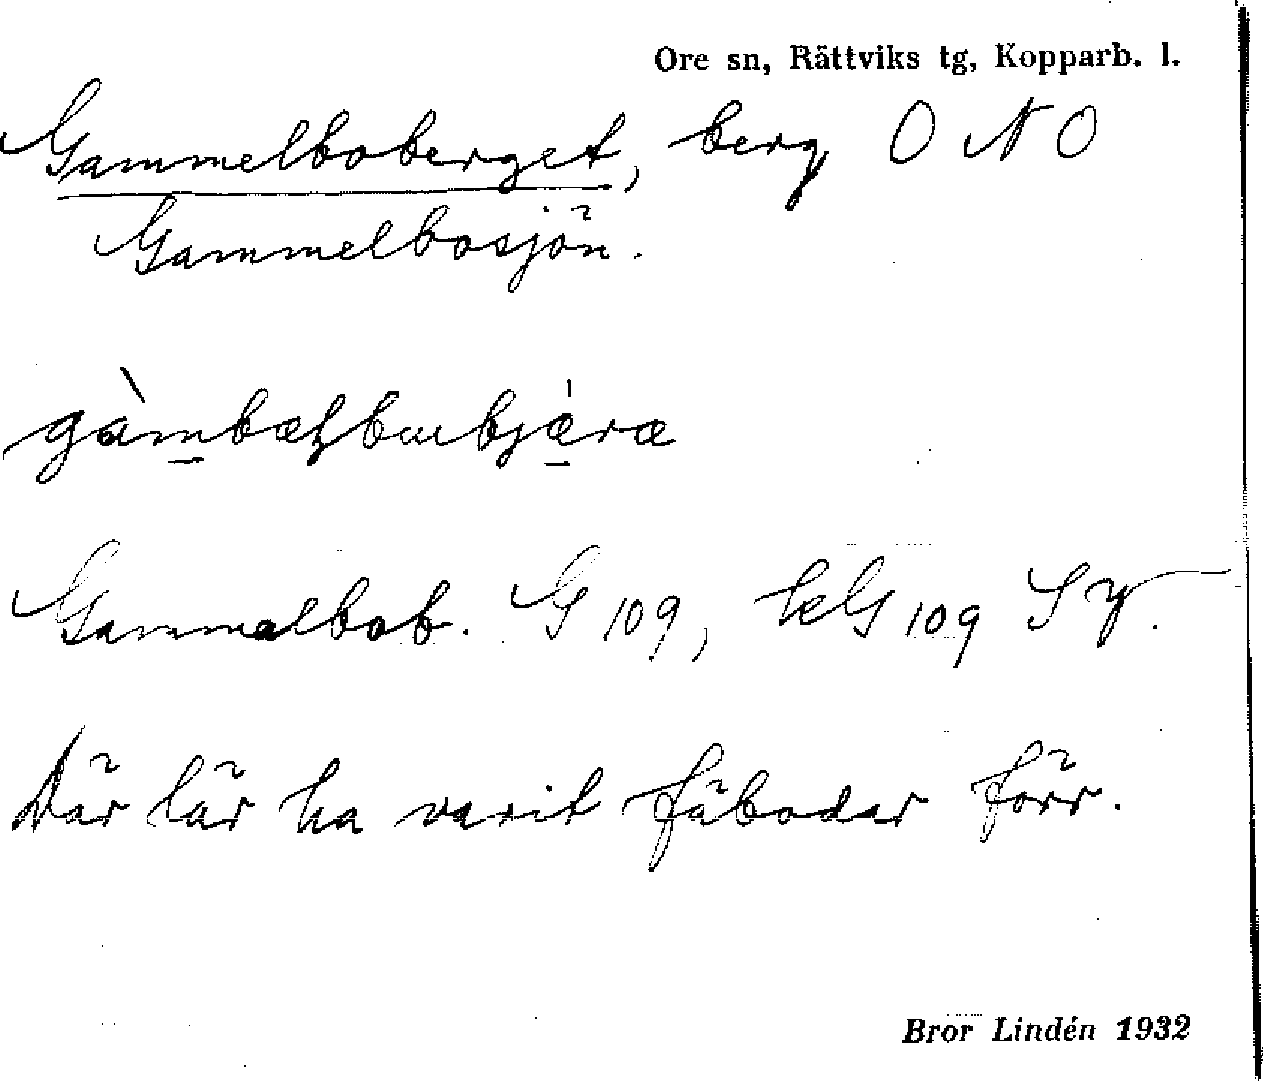 Ore sn, Rättviks tg, Kopparb. l.
Gammelboberget, berg O N O
Gammelbosjön.
Gammelbob. G 109, kG 109 SV.
Där lär ha varit fäbodar förr.
Bror Lindén 1932